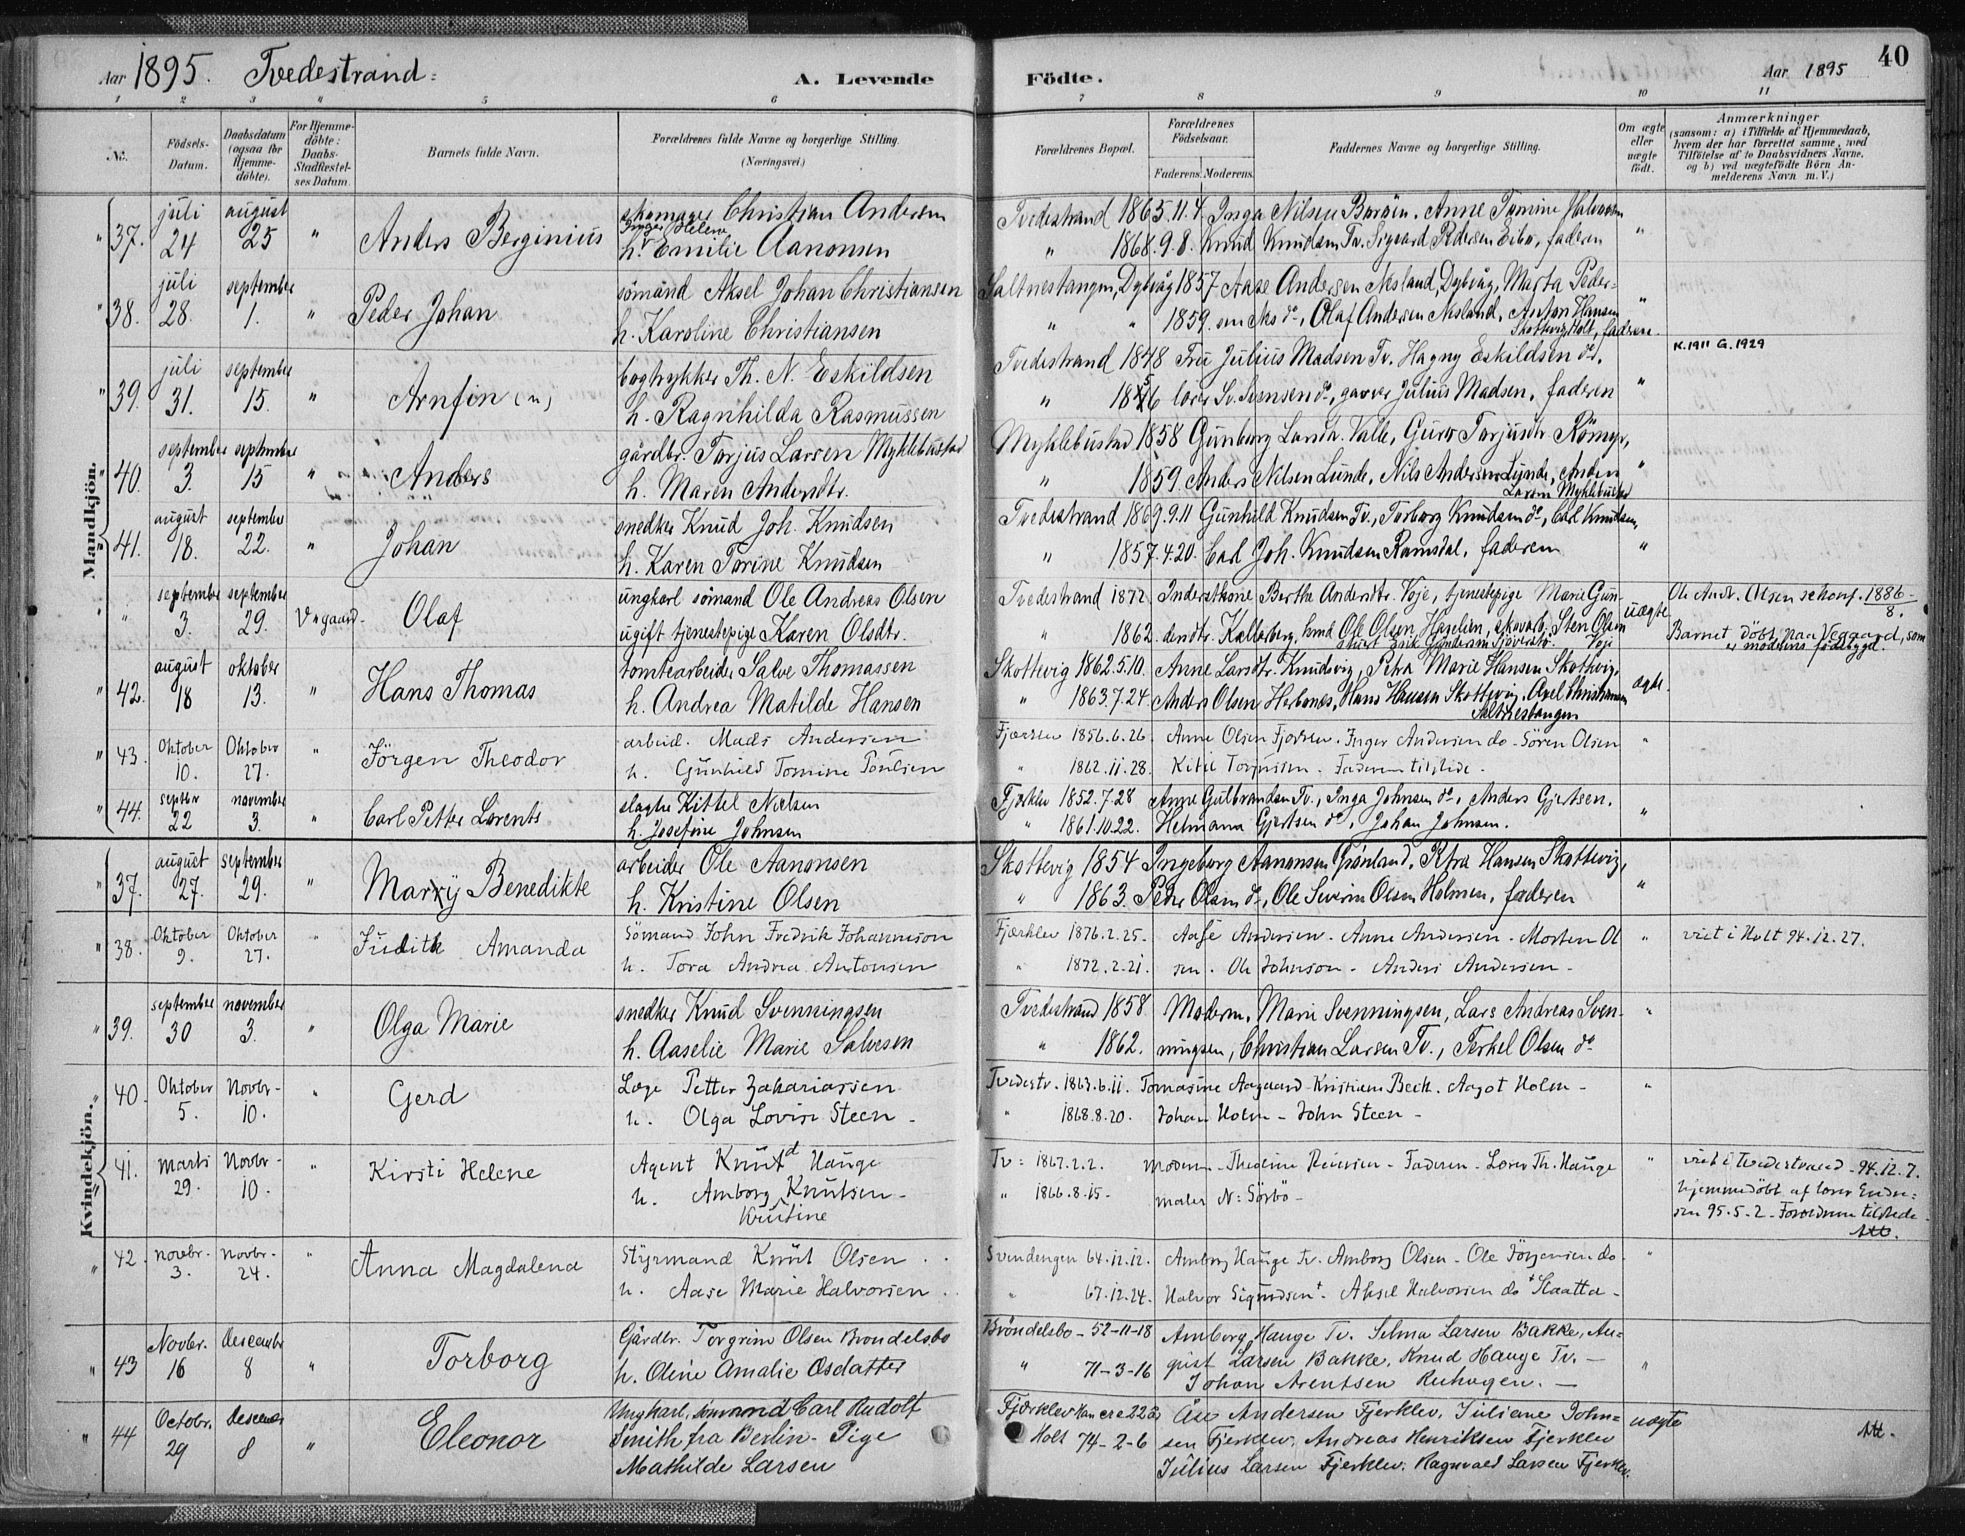 Aar 1895. Tvedestrand.
A. Levende Födte.
Aar 1895
40
1 2 3 4 5 6 7 8 9 10 11
No.
Födsels-Datum.
Daabsdatum (ogsaa for Hjemmedöbte).
For Hjemmedöbte: Daabs-Stadfæstelses Datum.
Barnets fulde Navn.
Forældrenes fulde Navne og borgerlige Stilling (Næringsvei.)
Forældrenes Bopæl.
Forældrenes Födselsaar.
Faderens. Moderens.
Faddernes Navne og borgerlige Stilling.
Om ægte eller uægte födt.
Anmærkninger
(saasom: a) i Tilfælde af Hjemmedaab, hvem der har forrettet samme, med Tilföielse af to Daabsvidners Navne, og b) ved uægtefödte Börn Anmelderens Navn m. V.)
Mandkjön.
37. juli 24 august 25 " Anders Berginius
skomager Christian Andersen
Inger Helene
h. Emilie Aanonsen
Tvedestrand 1865.11.4. Inga Nilsen Borøen. Anne Tomine Halvorsen
" 1868.9.8. Knud Knudsen Tv. Sigvard Pedersen Eibo, faderen "
38. juli 28. september 1. " Peder Johan
sömand Aksel Johan Christiansen
h. Karoline Christiansen
Saltnestangen, Dybvåg 1857 Aase Andersen Nesland, Dybvåg, Marta Peder-
" " 1859. sen Næs do, Olaf Andersen Nesland, Anton Hansen
Skottevig, Holt, faderen.
39. juli 31. september 15. " Arnfin (n)
bogtrykker Th. N. Eskildsen
h. Ragnhilda Rasmussen
Tvedestrand 1848 Fru Julius Madsen Tv. Hagny Eskildsen do.
" 1856 lærer Sv. Svensen do, garver Julius Madsen, faderen "
K.1911 G.1929
40. september 3. september 15 " Anders
gårdbr. Torjus Larsen Myklebustad
h. Maren Andersdtr.
Myklebustad 1858 Gunborg Larsdtr. Valle, Guro Torjusdtr Römyr,
" 1859. Anders Nilsen Lunde, Nils Andersen Lunde, Anders
Larsen Myklebustad "
41. august 18. september 22. " Johan
snedker Knud Joh. Knudsen
h. Karen Torine Knudsen
Tvedestrand 1869.9.11 Gunhild Knudsen Tv., Torborg Knudsen do, Carl Knudsen,
" 1857.4.20. Carl Joh. Knudsen Ramsdal, faderen "
" september 3. september 29. Vegaard. Olaf
ungkarl sömand Ole Andreas Olsen
ugift tjenestepige Karen Olsdtr.
Tvedestrand 1872 Inderstkone Berthe Andersdtr. Voje, tjenestepige Marie Gun-
" 1862. dersdtr. Kallerberg, Ole Olsen Haselien, skovarb. Sten Olsen
Voje uægte
Ole Andr. Olsen se konf. 1886-8.
Barnet döbt paa Vegaard, som er moderens födebygd.
42. august 18 oktober 13. " Hans Thomas
tomtearbeider Salve Thomassen
h. Andrea Matilde Hansen
Skottevig 1862.5.10. Anne Larsdtr. Knudsvig, Petra Marie Hansen Skottevig,
" 1863.7.24. Anders Olsen Hesbønes, Hans Hansen Skottevig, Axel Christiansen
Saltnestangen ægte.
43. Oktober 10. Oktober 27. " Jörgen Theodor
arbeid. Mads Andersen
h. Gunhild Tomine Poulsen
Fjærklev 1856.6.26. Anne Olsen Fjærklev. Inger Andersen do - Sören Olsen
" 1862.11.28. Kitil Torjussen. Faderen tilstede. "
44. septbr 22 november 3. " Carl Petter Lorents
slagter Kittel Nielsen
h. Josefine Johnsen
Fjærklev 1852.7.28 Anne Gulbrandsen Tv., Inga Johnsen do, Anders Gjertsen.
" 1861.10.22. Helmana Gjertsen do, Johan Johnsen. "
Kvindekjön.
37. august 27. september 29. " Mary Benedikte
arbeider Ole Aanonsen
h. Kristine Olsen
Skottevig 1854 Ingeborg Aanonsen Grønland, Petra Hansen Skottevig,
" 1863. Peder Olsen do, Ole Severin Olsen Holmen, faderen "
38. Oktober 9. Oktober 27. " Judith Amanda
Sömand John Fredrik Johannison
h. Tora Andrea Antonsen
Fjærklev 1876.2.25. Aase Andersen. Anne Andersen - Morten Ol
" 1872.2.21. sen. Ole Johnson - Anders Andersen - "
viet i Holt 94.12.27.
39. september 30 november 3. " Olga Marie
snedker Knud Svenningsen
h. Aaselie Marie Salvesen
Tvedestrand 1858. Moderen, Marie Svenningsen, Lars Andreas Sven-
" 1862. ningsen, Christian Larsen Tv., Terkel Olsen do "
40. Oktober 5. Novbr- 10. " Gerd
Læge Petter Zakariassen
h. Olga Lovise Steen -
Tvedestr. 1863.6.11. Tomasine Aagaard - Kristiane Bech. Aagot Holm -
" 1868.8.20. Johan Holm - John Steen - "
41. Marts 29. Novbr- 10. " Kirsti Helene
Agent Knut Hauge
h. Amborg Knutsen -
Kristine
Tv: 1867.2.2. Moderen - Thedine Reiersen - Faderen - Lærer Th. Hauge
" 1866.8.15- maler N: Sörbö - "
viet i Tvedestrand - 94.12.7.
hjemmedöbt af lærer Endre=
sen 95.5.2 - Forældrene tilstede -
Att.
42. Novbr. 3. Novbr- 24. " Anna Magdalena
Styrmand Knut Olsen
h. Aase Marie Halvorsen
Svendengen 64.12.12. Amborg Hauge Tv. Amborg Olsen - Ole Jörgensen do -
" 67.12.24. Halvor Sigurdsen + Aksel Halvorsen do + Staatta - "
43 Novbr. 16 Desember 8 " Torborg
Gårdbr. Torgrim Olsen Brøndelsbo
h. Oline Amalie Osdatter
Bröndelsbo - 52-11-18 Amborg Hauge Tv. Selma Larsen Bakke, Au=
" 71-3-16 gust Larsen Bakke, Knud Hauge Tv. -
Johan Arentsen Ruhagen. - "
44 Octobr. 29 Desember 8 " Eleonor
Ungkarl, sömand Carl Rudolf
Smith fra Berlin - Pige
Mathilde Larsen
Fjærklev Han cra 22 år Åse Andersen Fjerklev, Juliane John=
Holt 74-2-6 sen Fjerklev, Andreas Henriksen Fjerklev
Julius Larsen Fjerklev. Ragnvald Larsen Fjerklev. uægte
Att.